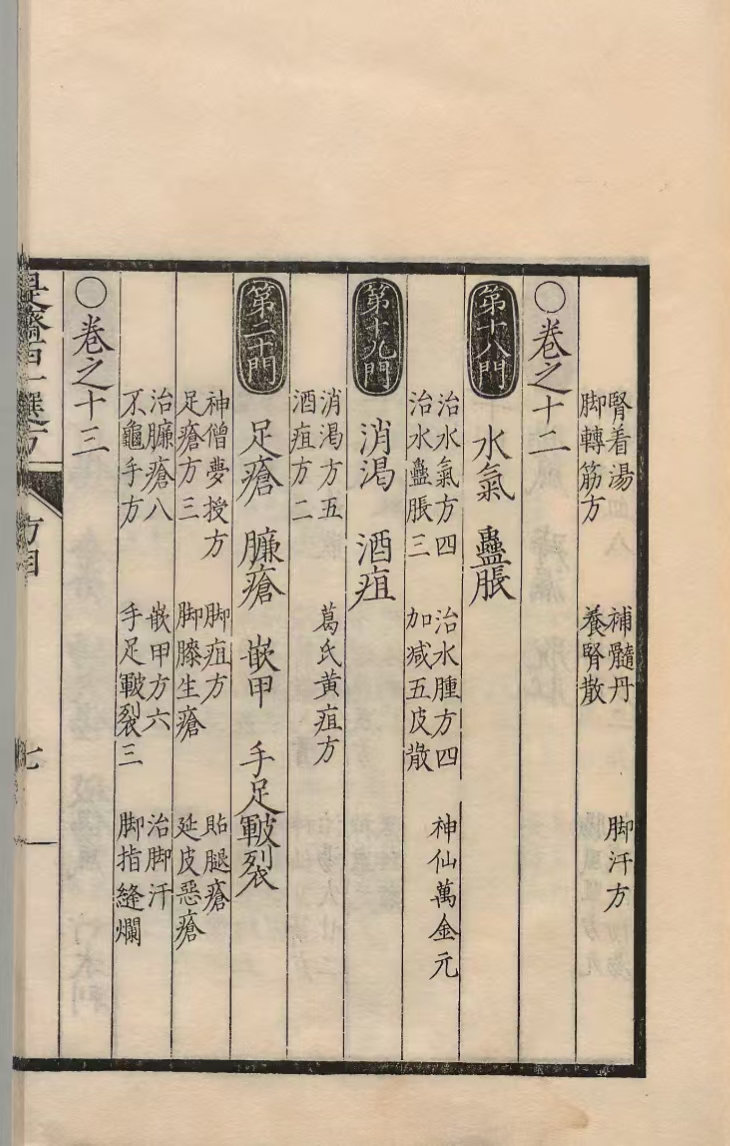 腎着湯　補髓丹　脚汗方
脚轉筋方　養腎散
○卷之十二
第十八門　水氣　蠱脹
治水氣方四　治水腫方四　神仙萬金元
治水蠱脹三　加减五皮散
第十九門　消渴　酒疸
消渴方五　葛氏黄疸方
酒疸方二
第二十門　足瘡　臁瘡　嵌甲　手足皸裂
神僧夢授方　脚疽方　貼腿瘡
足瘡方三　脚膝生瘡　延皮惡瘡
治臁瘡八　嵌甲方六　治脚汗
不龜手方　手足皸裂三　脚指縫爛
○卷之十三
是齋百一選方　方目　七